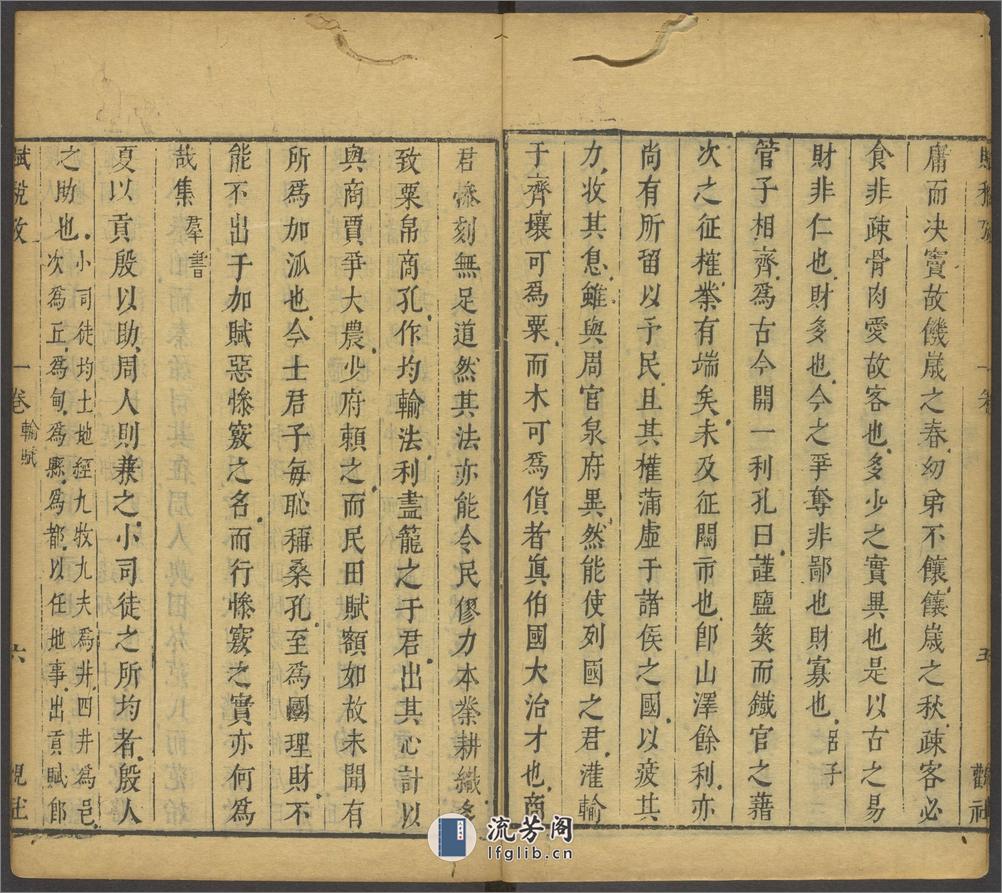 庸而决竇故饑歲之春幼弟不饟饟歲之秋疎客必
食非疎骨肉愛故客也多少之實異也是以古之易
財非仁也財多也今之爭奪非鄙也財寡也
管子相齊爲古今開一利孔曰謹鹽筴而鐵官之藉
次之征榷業有端矣未及征關市也卽山澤餘利亦
尚有所留以予民且其權蒲虛于諸侯之國以疲其
力收其息雖與周官泉府異然能使列國之君灌輸
于齊壤可爲粟而木可爲貨者眞伯國大治才也商
君慘刻無足道然其法亦能令民僇力本業耕織多
致粟帛商孔作均輸法利盡籠之于君出其心計以
與商賈爭大農少府頼之而民田賦額如故未聞有
所爲加派也今士君子每恥稱桑孔至爲國理財不
能不出于加賦惡慘竅之名而行慘竅之實亦何爲
哉集羣書
夏以貢殷以助周人則兼之小司徒之所均者殷人
之助也小司徒均土地經九牧九夫爲井四井爲邑
次爲丘爲甸爲縣爲都以任地事出貢賦郎
一卷
輸賦
六
一卷
五
流芳阁
lfglib.cn